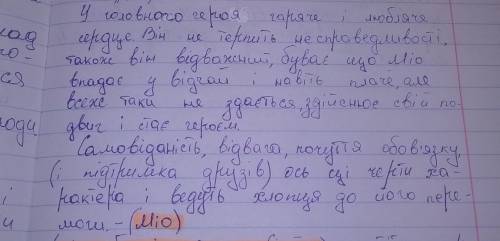 У головного героя гаряче і любляче
серце. Він не терпить несправедливості,
також він відважний, буває що Міо
впадає у відчай і навіть плаче, але
всеж таки не здається, здійснює свій по-
двиг і стає героєм.
Самовіданість, відвага, почуття обов'язку,
(і підтримка друзів) ось ці черти ха-
рактера і ведуть хлопця до його пере-
моги. - (Міо)